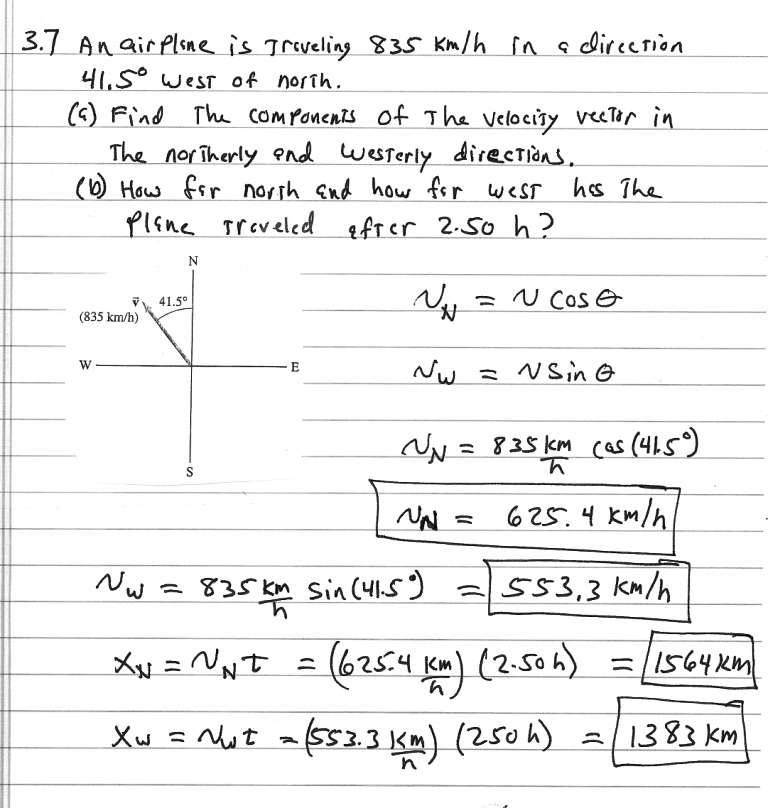 3.7 An airplane is traveling 835 km/h in a direction
41.5° west of north.
(a) Find the components of the velocity vector in
the northerly and westerly directions.
(b) How far north and how far west has the
plane traveled after 2.50 h?
N
v⃗ 41.5°
(835 km/h)
W E
S
v_N = v cos θ
v_w = v sin θ
v_N = 835 km/h cos (41.5°)
v_N = 625.4 km/h
v_w = 835 km/h sin (41.5°) = 553.3 km/h
x_N = v_N t = (625.4 km/h) (2.50 h) = 1564 km
x_w = v_w t = (553.3 km/h) (2.50 h) = 1383 km